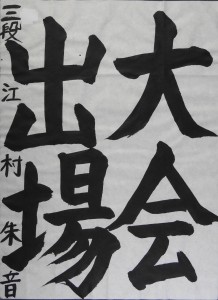 大会
出場
三段 江村朱音